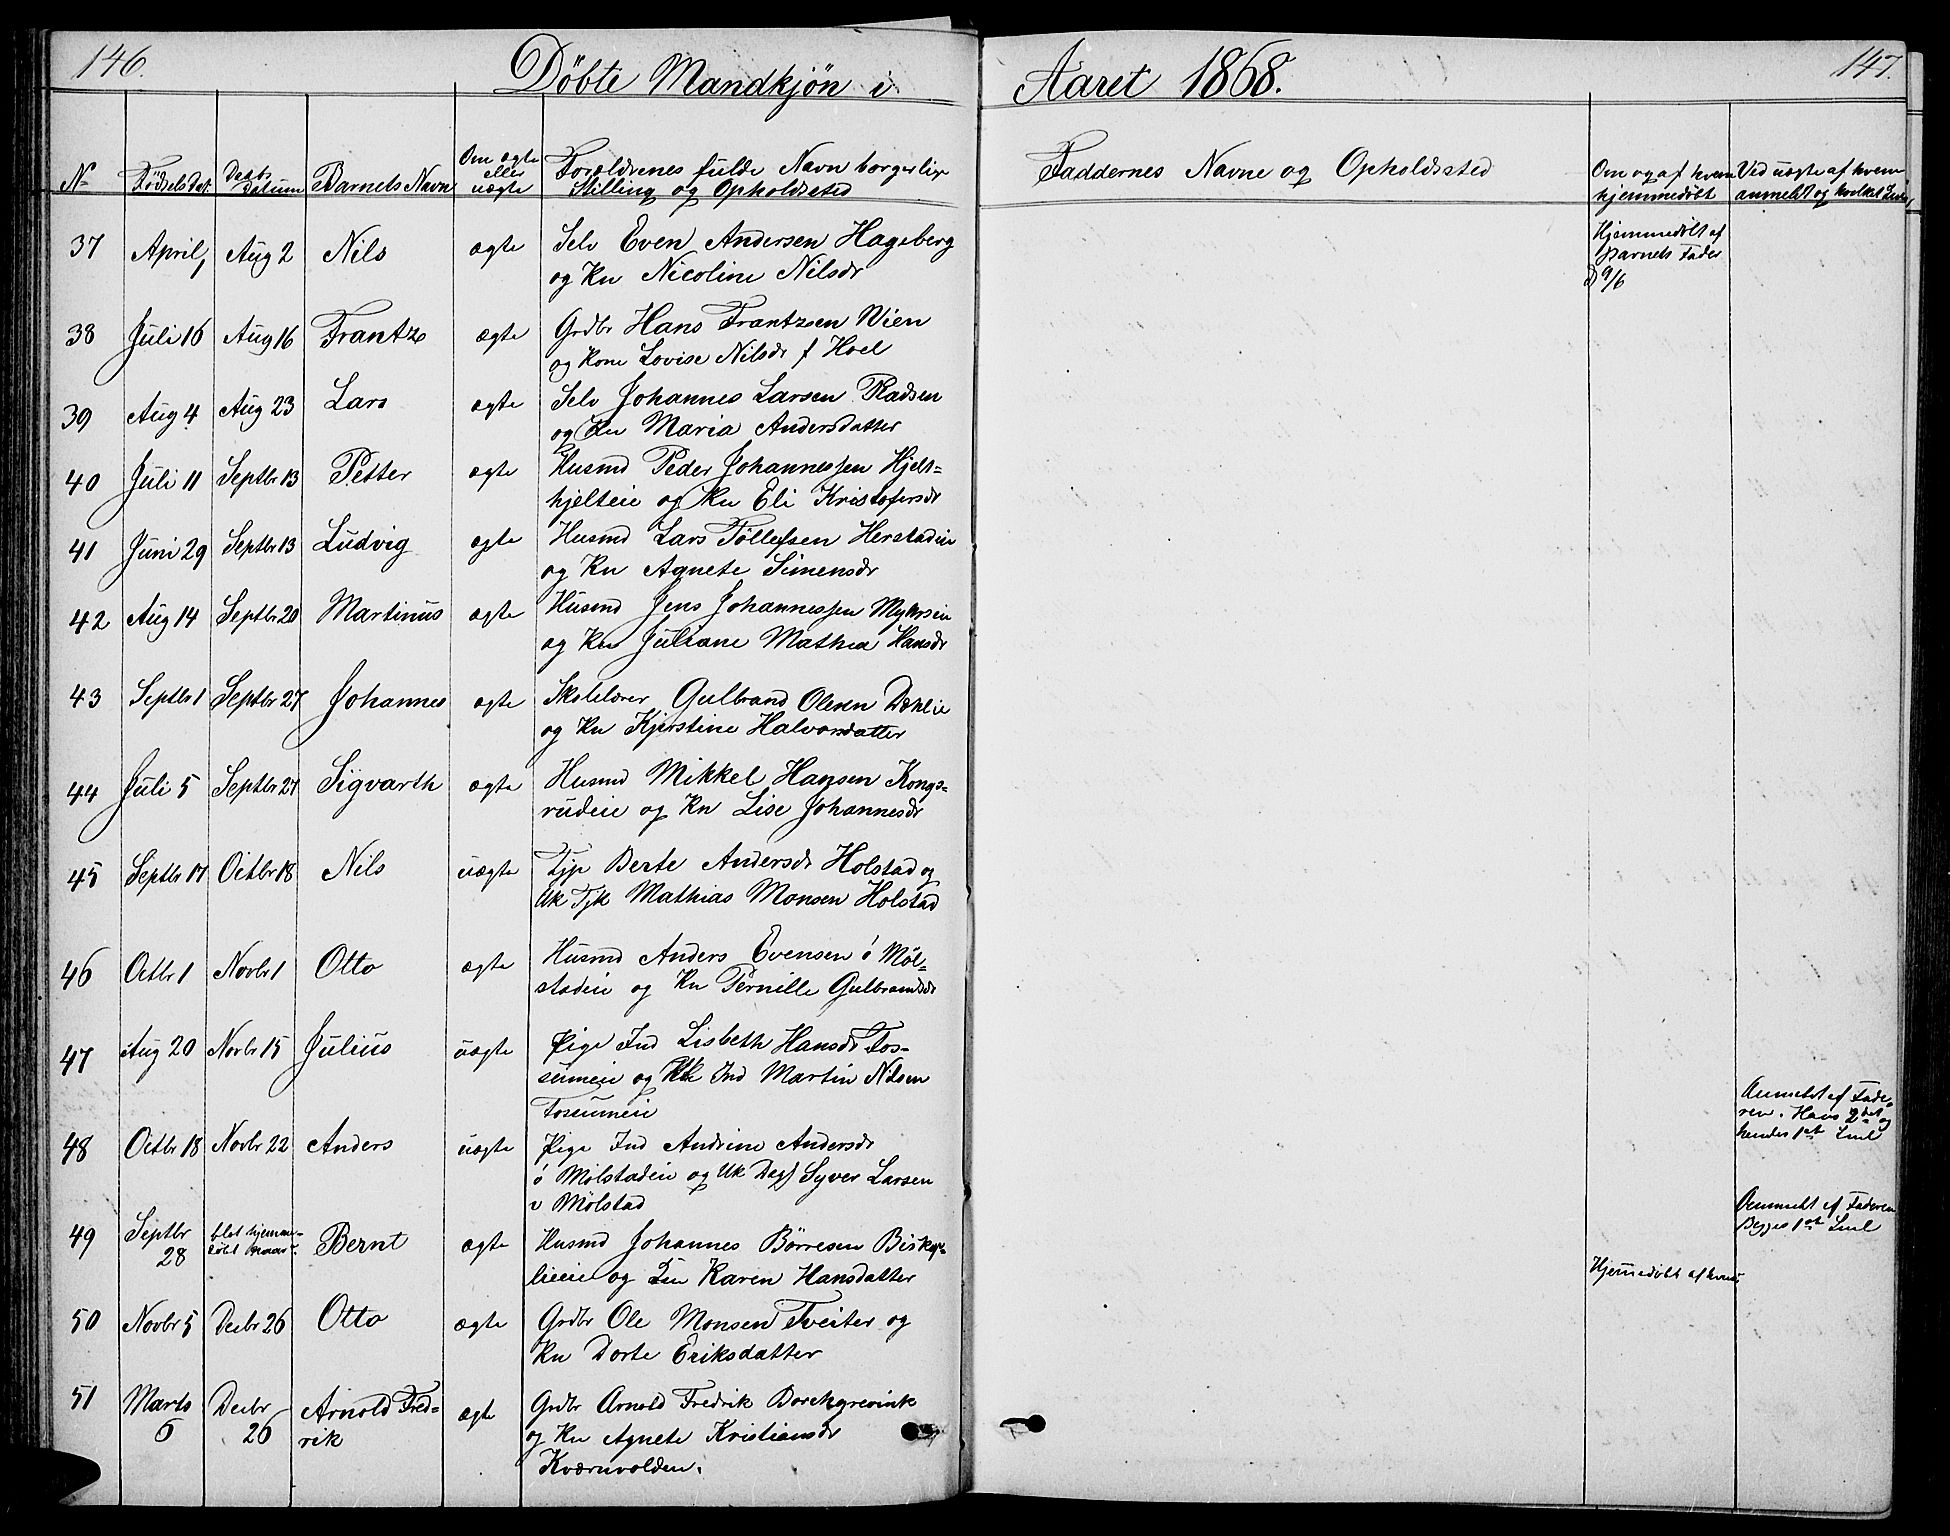 146.
Döbte Mandkjön i
Aaret 1868.
147.
No
Födsels Dat.
Daabs Datum
Barnets Navn
Om ægte eller uægte
Forældrenes fulde Navn borgerlige
Stilling og Opholdssted
Faddernes Navne og Opholdssted
Om og af hvem
hjemmedöbt
Ved uægte af hvem
anmeldt og hvilket Leie
37 April 1 Aug 2 Nils ægte Selv Even Andersen Hageberg
og Kn Nicoline Nilsdr
Hjemmedöbt af
Barnets Fader
d 9/6
38 Juli 16 Aug 16 Frantz ægte Grdbr Hans Frantzsen Wien
og Kone Lovise Nilsdr f Hoel
39 Aug 4 Aug 23 Lars ægte Selv Johannes Larsen Radsen
og Kn Maria Andersdatter
40 Juli 11 Septbr 13 Petter ægte Husmd Peder Johannessen Hjelt=
hjelteie og Kn Eli Kristofersdr
41 Juni 29 Septbr 13 Ludvig ægte Husmd Lars Tollefsen Herstadeie
og Kn Agnete Simensdr
42 Aug 14 Septbr 20 Martinus ægte Husmd Jens Johannessen
og Kn Juliane Mathea Hansdr
43 Septbr 1 Septbr 27 Johannes ægte Skolelærer Gulbrand Olesen Dæhlie
og Kn Kjerstine Halvorsdatter
44 Juli 5 Septbr 27 Sigvarth ægte Husmd Mikkel Hansen Kongs=
rudeie og Kn Lise Johannesdr
45 Septbr 17 Octbr 18 Nils uægte Tjp Berte Andersdr Holstad og
Uk Tjk Mathias Monsen Holstad
46 Octbr 1 Novbr 1 Otto ægte Husmd Anders Evensen ó Möl=
stadeie og Kn Pernille Gulbrandsdr
47 Aug 20 Novbr 15 Julius uægte Pige Ind Lisbeth Hansdr Fos=
sumeie og Uk Ind Martin Nilsen
Fossumeie
Anmeldt af Fade=
ren. Hans 2det og
hendes 1st Leiel
48 Octbr 18 Novbr 22 Anders uægte Pige Ind Andrine Andersdr
ó Mölstadeie og Uk Dagl Syver Larsen
v Mölstad
Anmeldt af Faderen
Begges 1st Leiel
49 Septbr
28
blot hjemme=
döbt
Bernt ægte Husmd Johannes Börresen Biskop=
lieeie og Kn Karen Hansdatter
Hjemmedöbt af hvem
50 Novbr 5 Decbr 26 Otto ægte Grdbr Ole Monsen Tveiter og
Kn Dorte Eriksdatter
51 Marts
6
Decbr
26
Arnold Fred=
rik
ægte Grdbr Arnold Fredrik Borchgrevink
og Kn Agnete Kristiansdr
Kværnvolden.